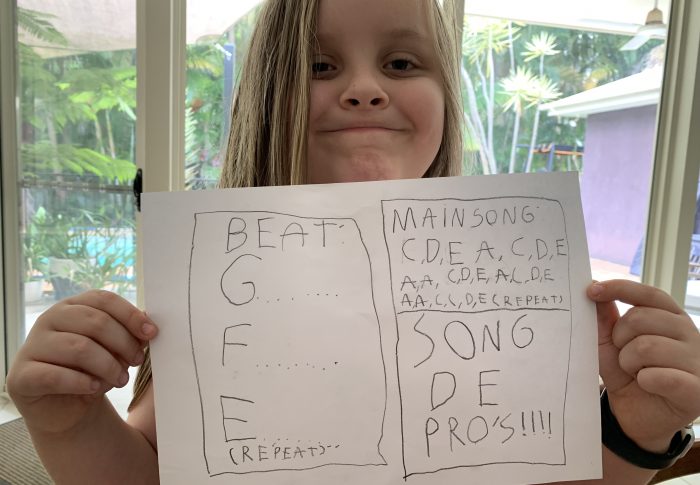 BEAT:
G.........
F.........
E.........
(REPEAT)--
MAINSONG:
C,D,E A, C, D,E
A,A, C,D,E, A,C,D,E
A,A,C,C,D,E(REPEAT)
SONG
DE
PRO'S!!!!